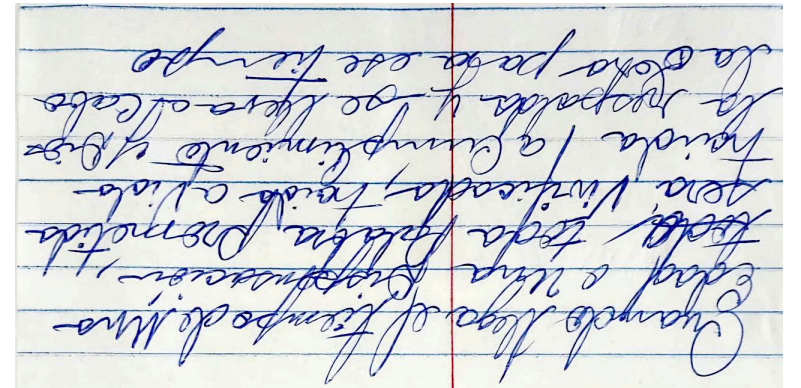 Cuando llega el tiempo de Una
Edad o Una Dispensación,
toda, toda palabra prometida
sera Vivificada, traida a vida
traida a cumplimiento y Dios
la respalda y se lleva a Cabo
la Obra para ese tiempo